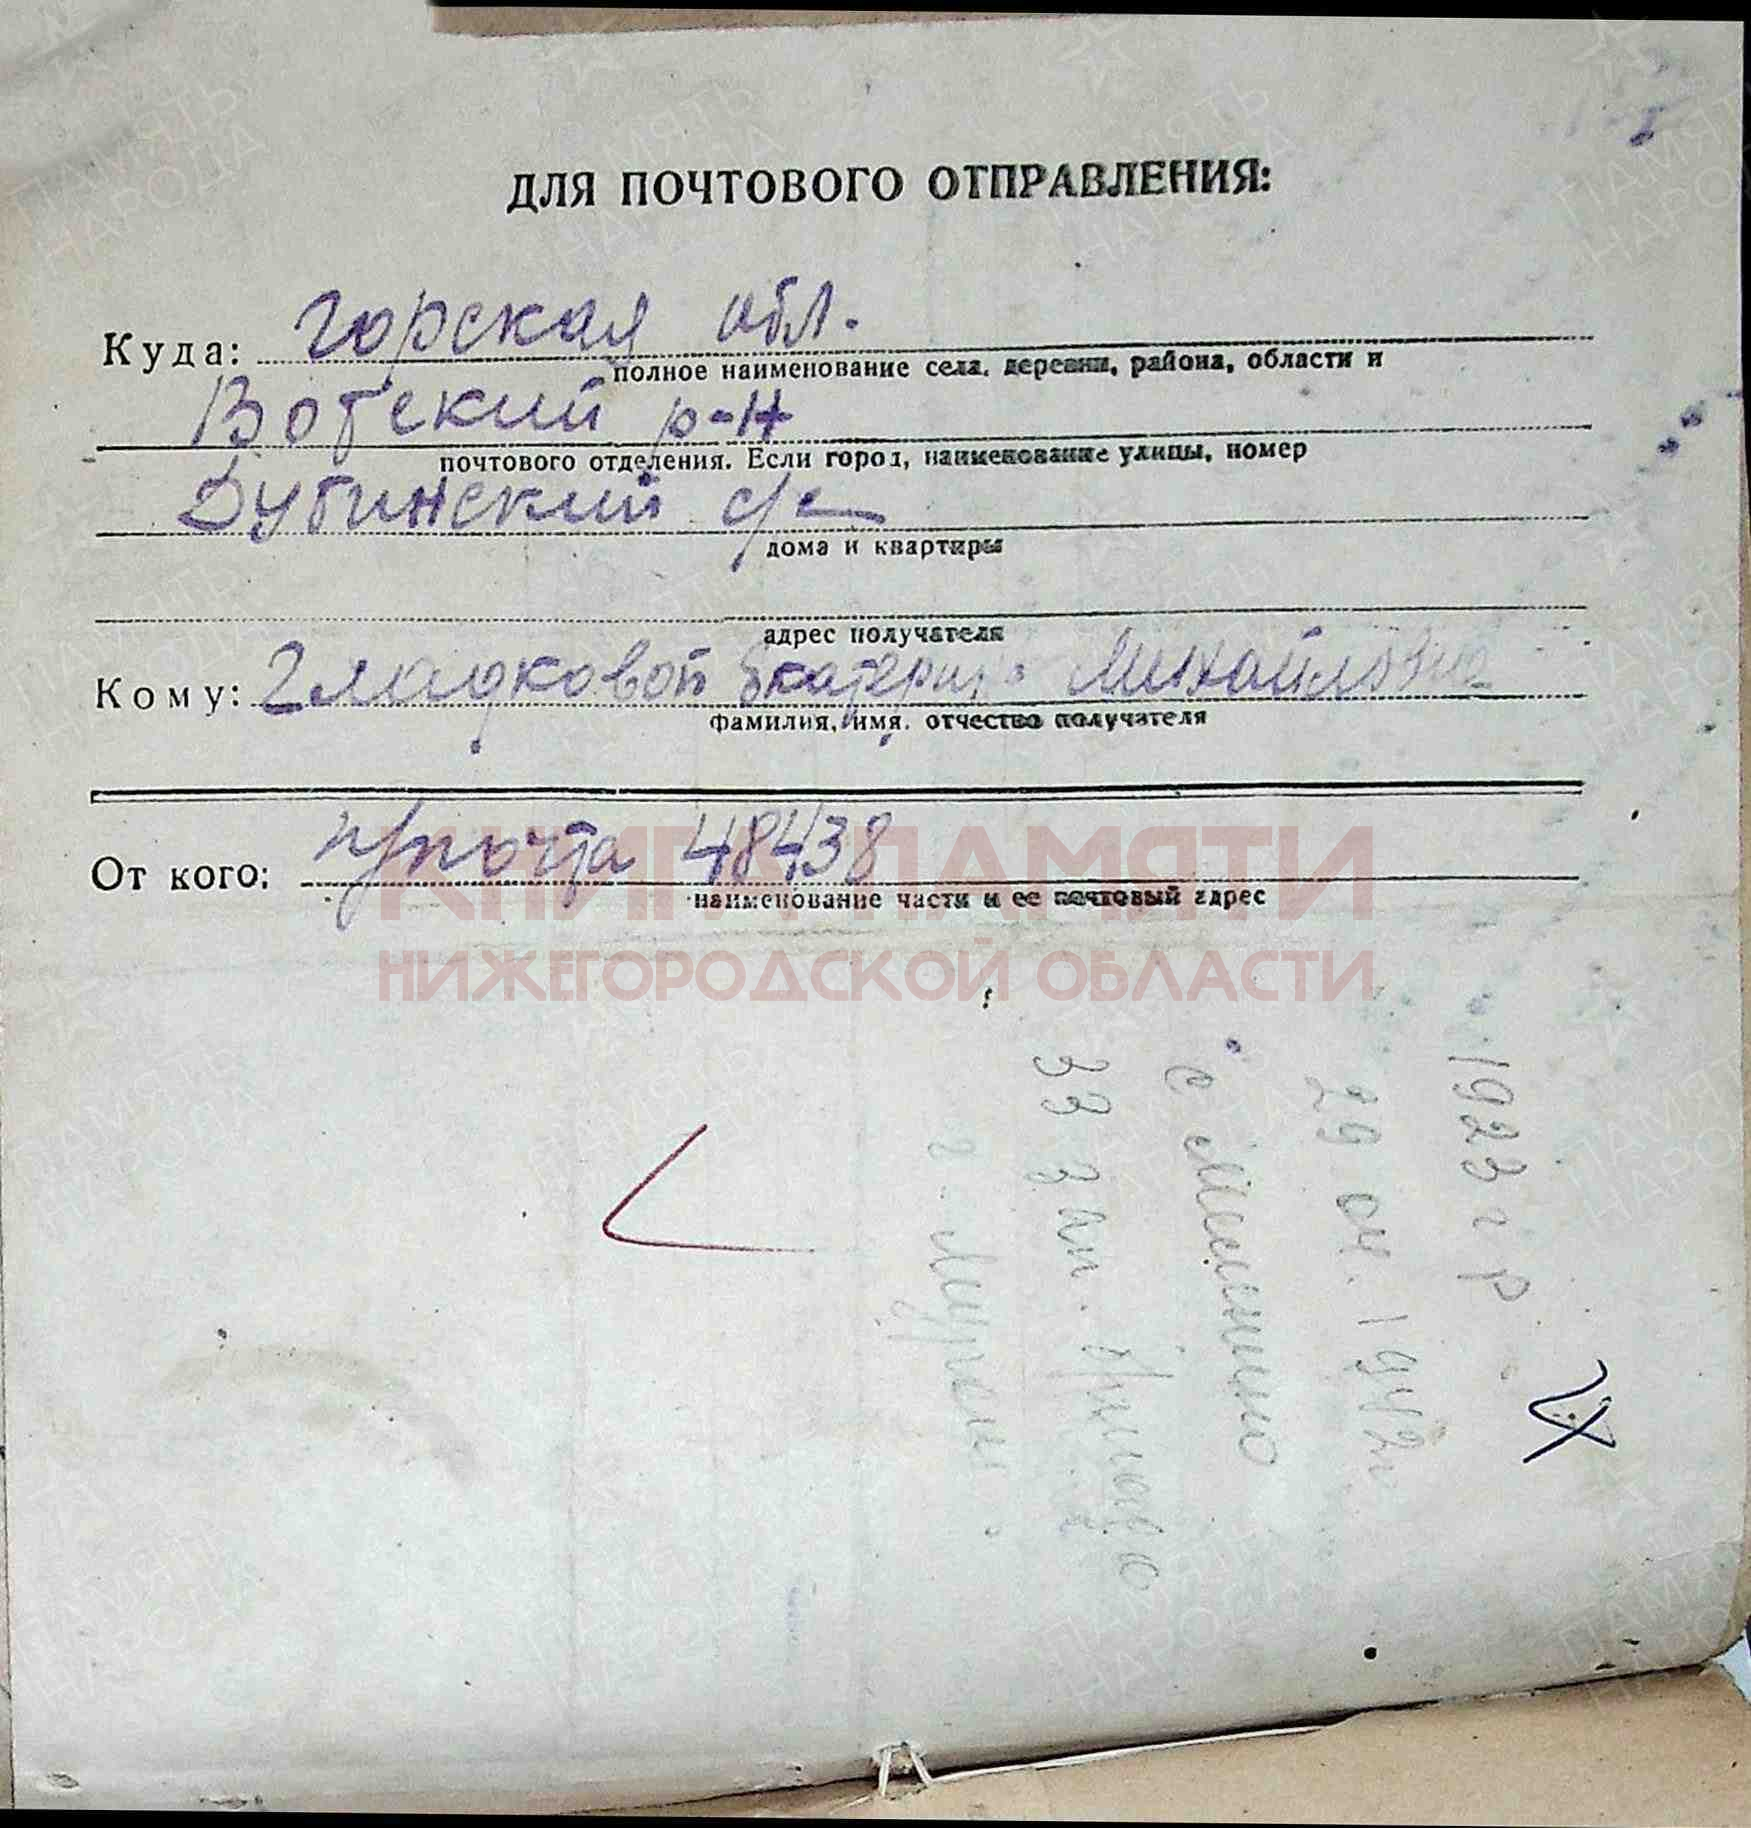 ДЛЯ ПОЧТОВОГО ОТПРАВЛЕНИЯ:
Куда: Горская обл.
полное наименование села, деревни, района, области и
Вотский р-н
почтового отделения. Если город, наименование улицы, номер
Дубинский с/с
дома и квартиры
адрес получателя
Кому: Гладковой Екатерин Михайловна
фамилия, имя, отчество получателя
От кого: п/почта 48438
наименование части и ее почтовый адрес
КНИГА ПАМЯТИ
НИЖЕГОРОДСКОЙ ОБЛАСТИ
1923 г р
29 ок. 1942г
с
33 зап.
г.
ПАМЯТЬ
НАРОДА